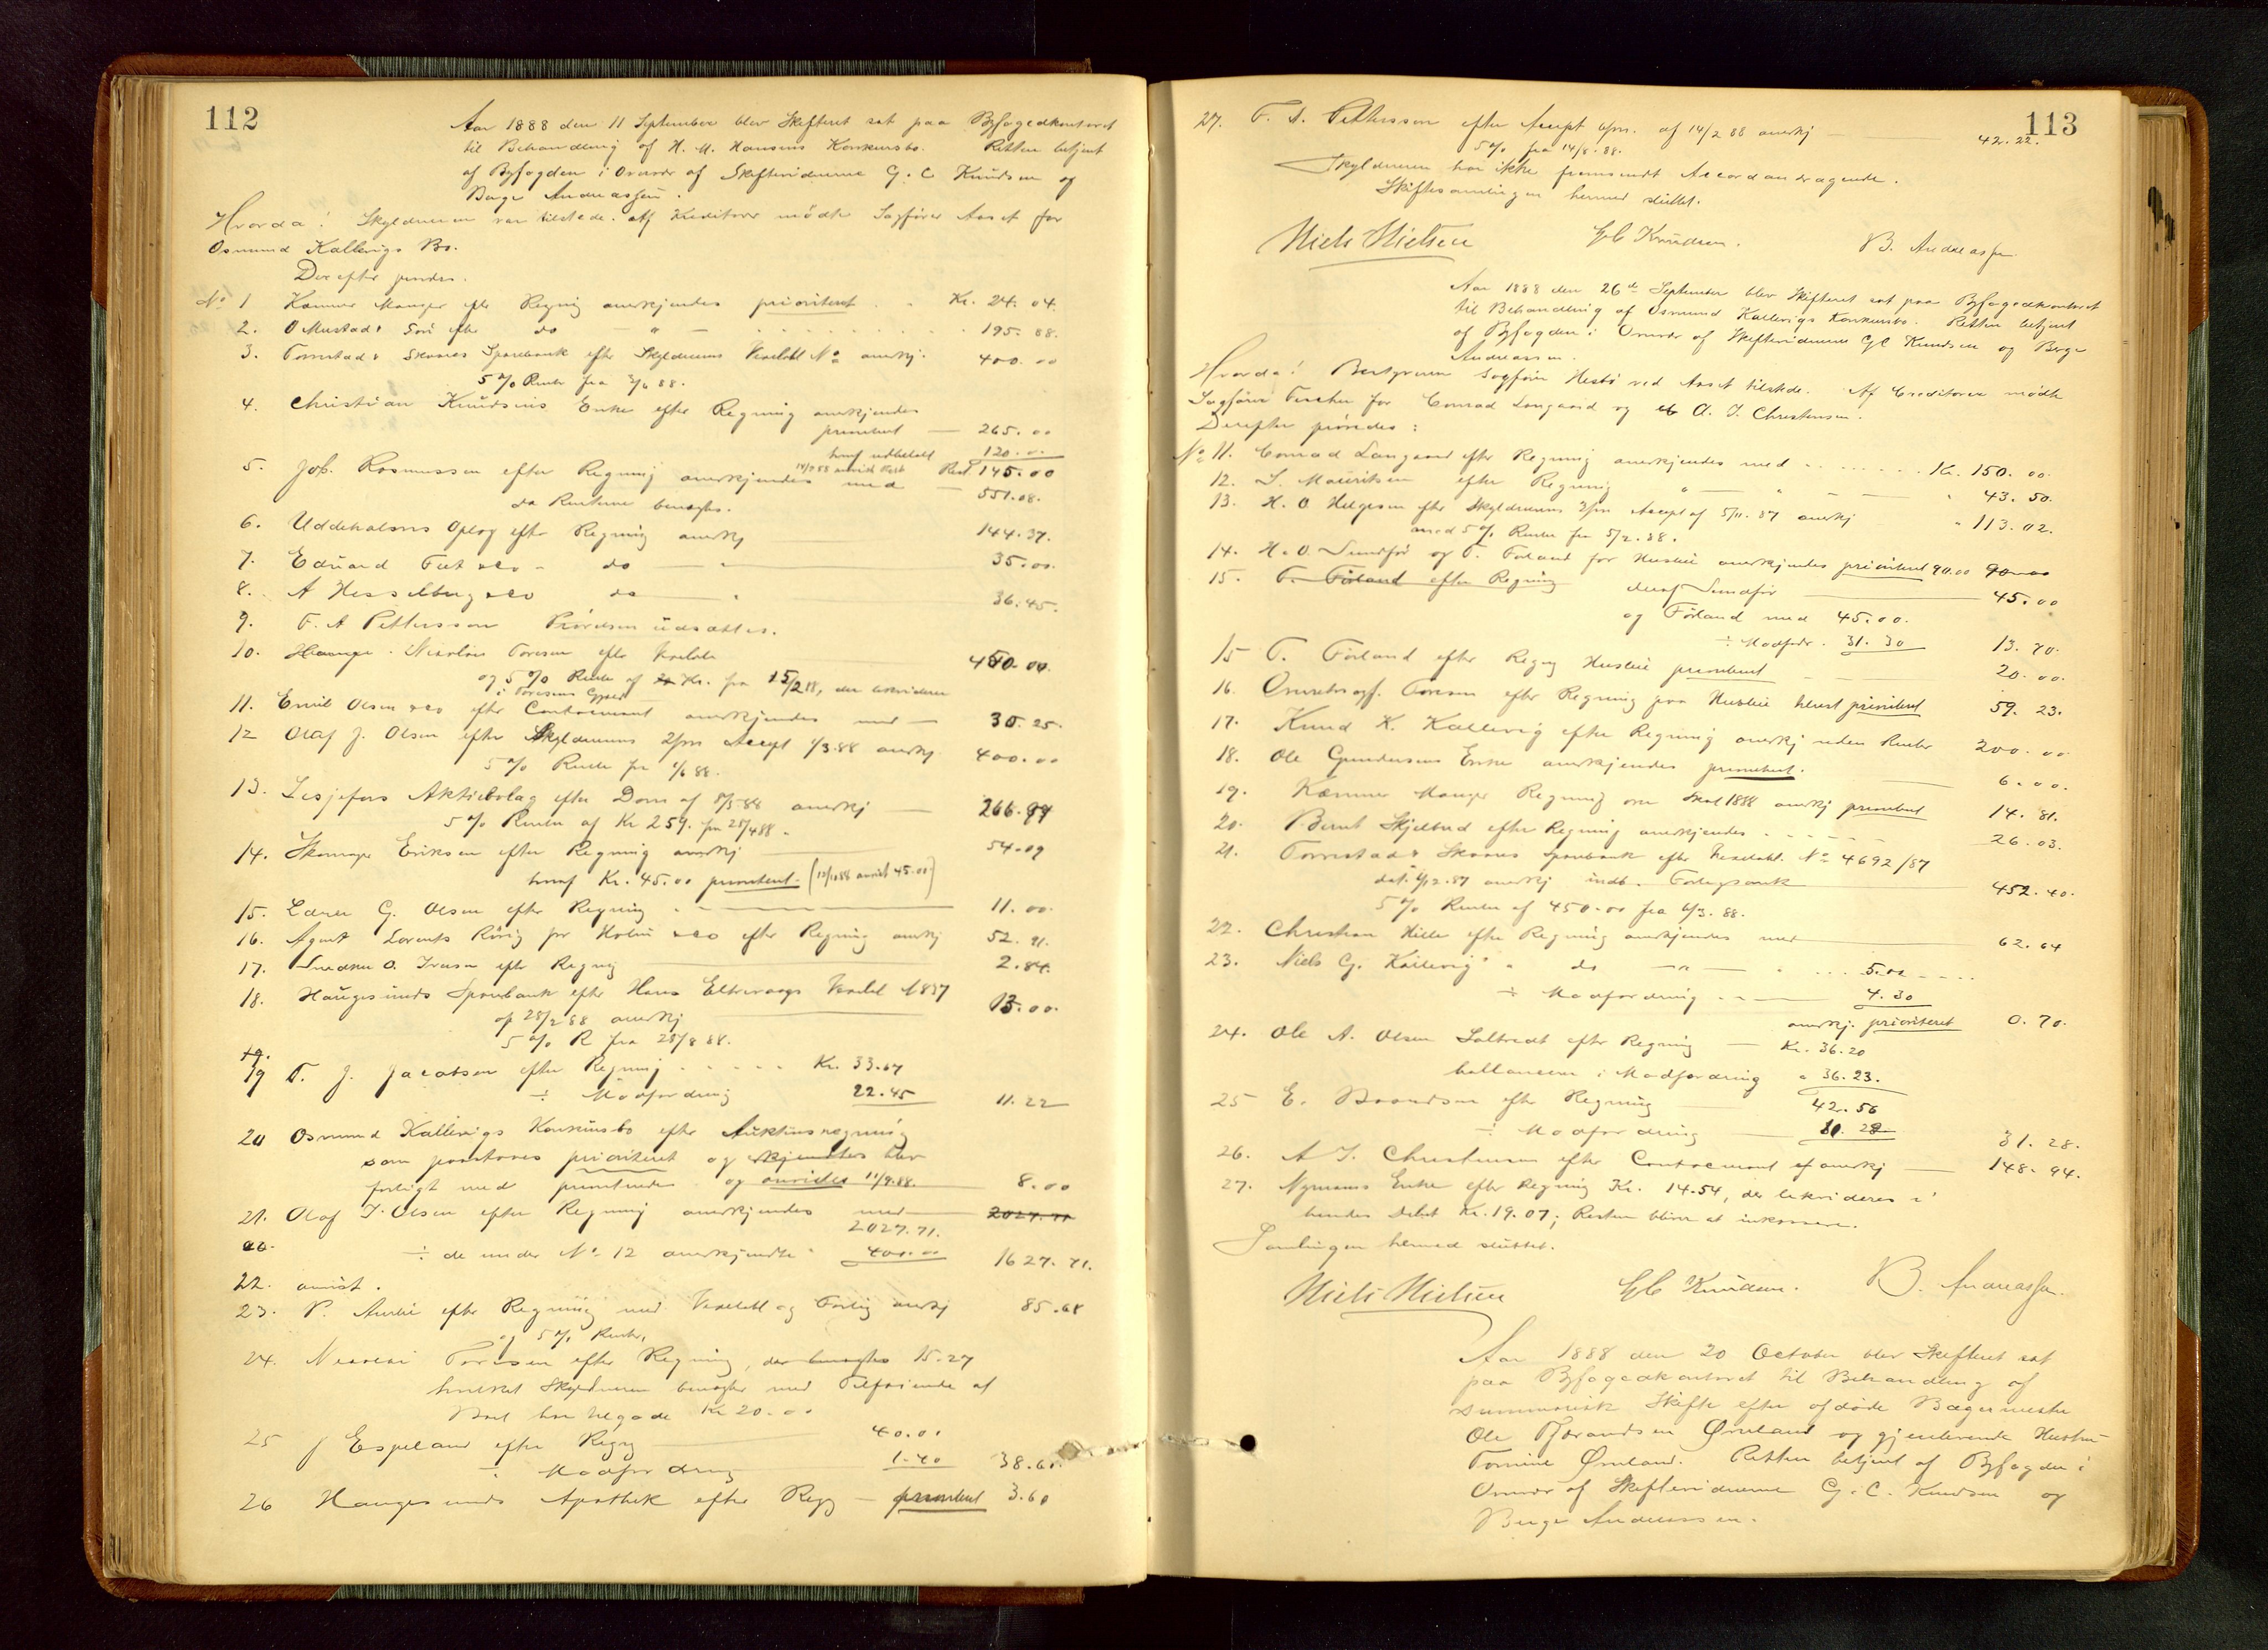 112
Aar 1888 den 11 September blev Skifteret sat paa Byfogedkontoret
til Behandling af H. M. Hansens Konkursbo. Retten betjent
af Byfogden i Overvær af Skiftevidnerne G. C. Knudsen og
Berge Andreassen.
Hvorda: Skyldneren var tilstede. Af Kreditorer mødte Sagfører Aaset for
Osmund Kallevigs Bo.
Derefter prøvdes.
No 1 Kæmner Manger efter Regning anerkjendes prioriteret Kr. 24.04.
2. O Mustad & Søn efter do — " — 195.88.
3. Torvestad & Skaares Sparebank efter Skyldnerens Vexelobl No anerkj. 400.00
5 % Rente fra 3/6 88.
4. Christian Knudsens Enke efter Regning anerkjendes
prioriteret — 265.00
hvoraf udbetalt 120.00
14/9 88 Rest 145.00
5. Joh. Rasmussen efter Regning anerkjendes med — 551.08.
da Renterne benægtes.
6. Uddeholms Oplag efter Regning anerkj 144.37.
7. Eduard Fett & Co - do — " 35.00.
8. A Hesselberg & Co do — " 36.45.
9. F. A Pettersson Prøvelsen udsættes.
10. Nicolai Toresen efter Vexelobl 450.00.
og 5 % Rente af Kr. fra 15/2 88, der likviderer
i Toresens Gjæld
11. Emil Olsen & Co efter Contocourant anerkjendes med — 30.25.
12 Olaf J. Olsen efter Skyldnerens 2/m Accept 1/3.88 anerkj. 400.00
5 % Rente fra 1/6 88.
13. Lesjefors Aktiebolag efter Dom af 8/5 88 anerkj — 266.99
5 % Renter af Kr 259. fra 28/4 88.
14. Skomager Eriksen efter Regning anerkj 54.09
hvoraf Kr. 45.00 prioriteret. (12/10 88 anvist 45.00)
15. Lærer G. Olsen efter Regning 11.00.
16. Agent Lorents Rørig for Holm & Co efter Regning anerkj 52.91.
17. Snedker O. Iversen efter Regning 2.84.
18. Haugesunds Sparebank efter Hans Eltervaags Vexelobl 1837
af 28/2 88 anerkj 13.00.
5 % R fra 28/8 88.
19.
19 T. J. Jacobsen efter Regning Kr. 33.67
÷ Modfordring 22.45 11.22
20 Osmund Kallevigs Konkursbo efter Auktionsregning
som paastaaes prioriteret og
forligt med prioriteret og anvistes 11/9.88. 8.00
21. Olaf J. Olsen efter Regning anerkjendes med 2027.71
2027.71.
÷ de under No 12 anerkjendte 400.00 1627.71.
22. anvist.
23. P. efter Regning med Vexelobl og Forlig anerkj 85.68
og 5 % Rente,
24. Nicolai Toresen efter Regning, der benægtes 15.27
hvilket Skyldneren benægter med Tilføiende af
Boet har tilgode Kr 20.00
25 J Espeland efter Regng 40.00
÷ Modfordring 1.40 38.60.
26 Haugesunds Apothek efter Regg — prioriteret 3.60
113
27. F. A. Pettersson efter Accept 6/m. af 14/2 88 anerkj 42.22.
5 % fra 14/8.88.
Skyldneren har ikke fremsendt Accordandragende.
Skiftesamlingen hermed sluttet.
Niels Nielsen GC Knudsen. B. Andreassen
Aar 1888 den 26de September blev Skifteret sat paa Byfogedkontoret
til Behandling af Osmund Kallevigs Konkursbo. Retten betjent
af Byfogden i Overvær af Skiftevidnerne GC Knudsen og Berge
Andreassen.
Hvorda: Bestyreren Sagfører Hesbø ved Aaset tilstede. Af Creditorer mødte
Sagfører Fischer for Conrad Langaard og A. I. Christensen.
Derefter prøvedes:
No 11. Conrad Langaard efter Regning anerkjendes med Kr. 150.00.
12. S. Mauritsen efter Regning " — " — " 43.50.
13. H. O. Helgesen efter Skyldnerens 3/m Accept af 5/11.87 anerkj " 113.02.
med 5 % Renter fra 5/2.88.
14. H. O. Sundfør og T. Førland for Husleie anerkjendes prioriteret 90.00 90.00
15. T. Førland efter Regning deraf Sundfør 45.00
og Førland med 45.00.
÷ Modfordr. 31.30 13.70.
15 T. Førland efter Regng Husleie prioriteret 20.00.
16. Overretssagf. Toresen efter Regning paa Husleie hvert prioriteret 59.23.
17. Knud K. Kallevig efter Regning anerkj uden Renter 200.00
18. Ole Gundersens Enke anerkjendes prioriteret. 6.00.
19. Kæmner Manger Regning om Skat 1888 anerkj prioriteret 14.81.
20. Bernt Skjelbred efter Regning anerkjendes 26.03.
21. Torvestad & Skaares Sparebank efter Vexelobl. No 4692/87
dat. 6/12.87 anerkj indb. 452.40.
5 % Renter af 450.00 fra 6/3.88.
22. Christian Hille efter Regning anerkjendes med 62.64
23. Niels G. Kallevig " do — " — " 5.00
÷ Modfordring 4.30
anerkj. prioriteret 0.70.
24. Ole A. Olsen Saltredt efter Regning — Kr. 36.20
ballancerer i Modfordring " 36.23.
25 E. efter Regning 42.56
÷ Modfordring 11.28 31.28.
26. A I. Christensen efter Contocourant anerkj — 148.94.
27. Nymanns Enke efter Regning Kr. 14.54, der likvideres i
hendes Debet Kr. 19.07; Resten bliver at inkassere.
Samlingen hermed sluttet.
Niels Nielsen GC Knudsen. B. Andreassen.
Aar 1888 den 20 October blev Skifteret sat
paa Byfogedkontoret til Behandling af
summarisk Skifte efter afdøde Bagermester
Ole Tjerandsen Ørnland og gjenlevende Hustru
Tomine Ørnland. Retten betjent af Byfogden i
Overvær af Skiftevidnerne G. C. Knudsen og
Berge Andreassen.